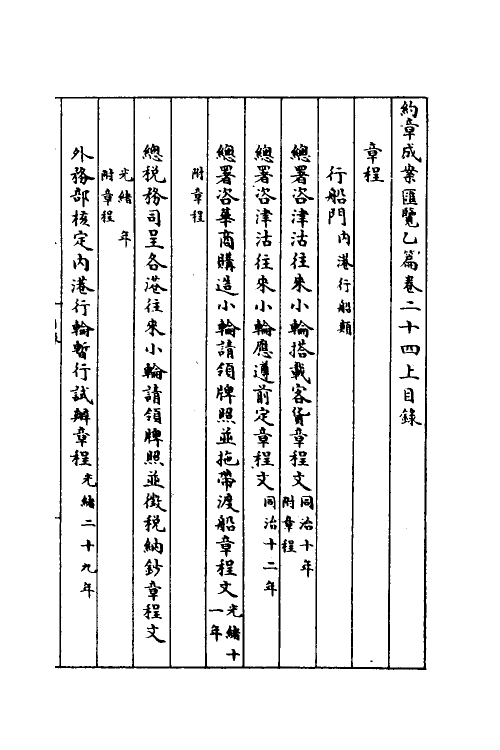 約章成案匯覽乙篇卷二十四上目錄
章程
行船門內港行船類
總署咨津沽往來小輪搭載客貨章程文同治十年附章程
總署咨津沽往來小輪應遵前定章程文同治十二年
總署咨華商購造小輪請領牌照並拖帶渡船章程文光緒十一年
附章程
總稅務司呈各港往來小輪請領牌照並徵稅納鈔章程文
光緒 年附章程
外務部核定內港行輪暫行試辦章程光緒二十九年